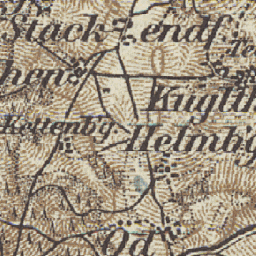 Stack endf
hen
Kuglh
Kettenbg
Helmbg
Od